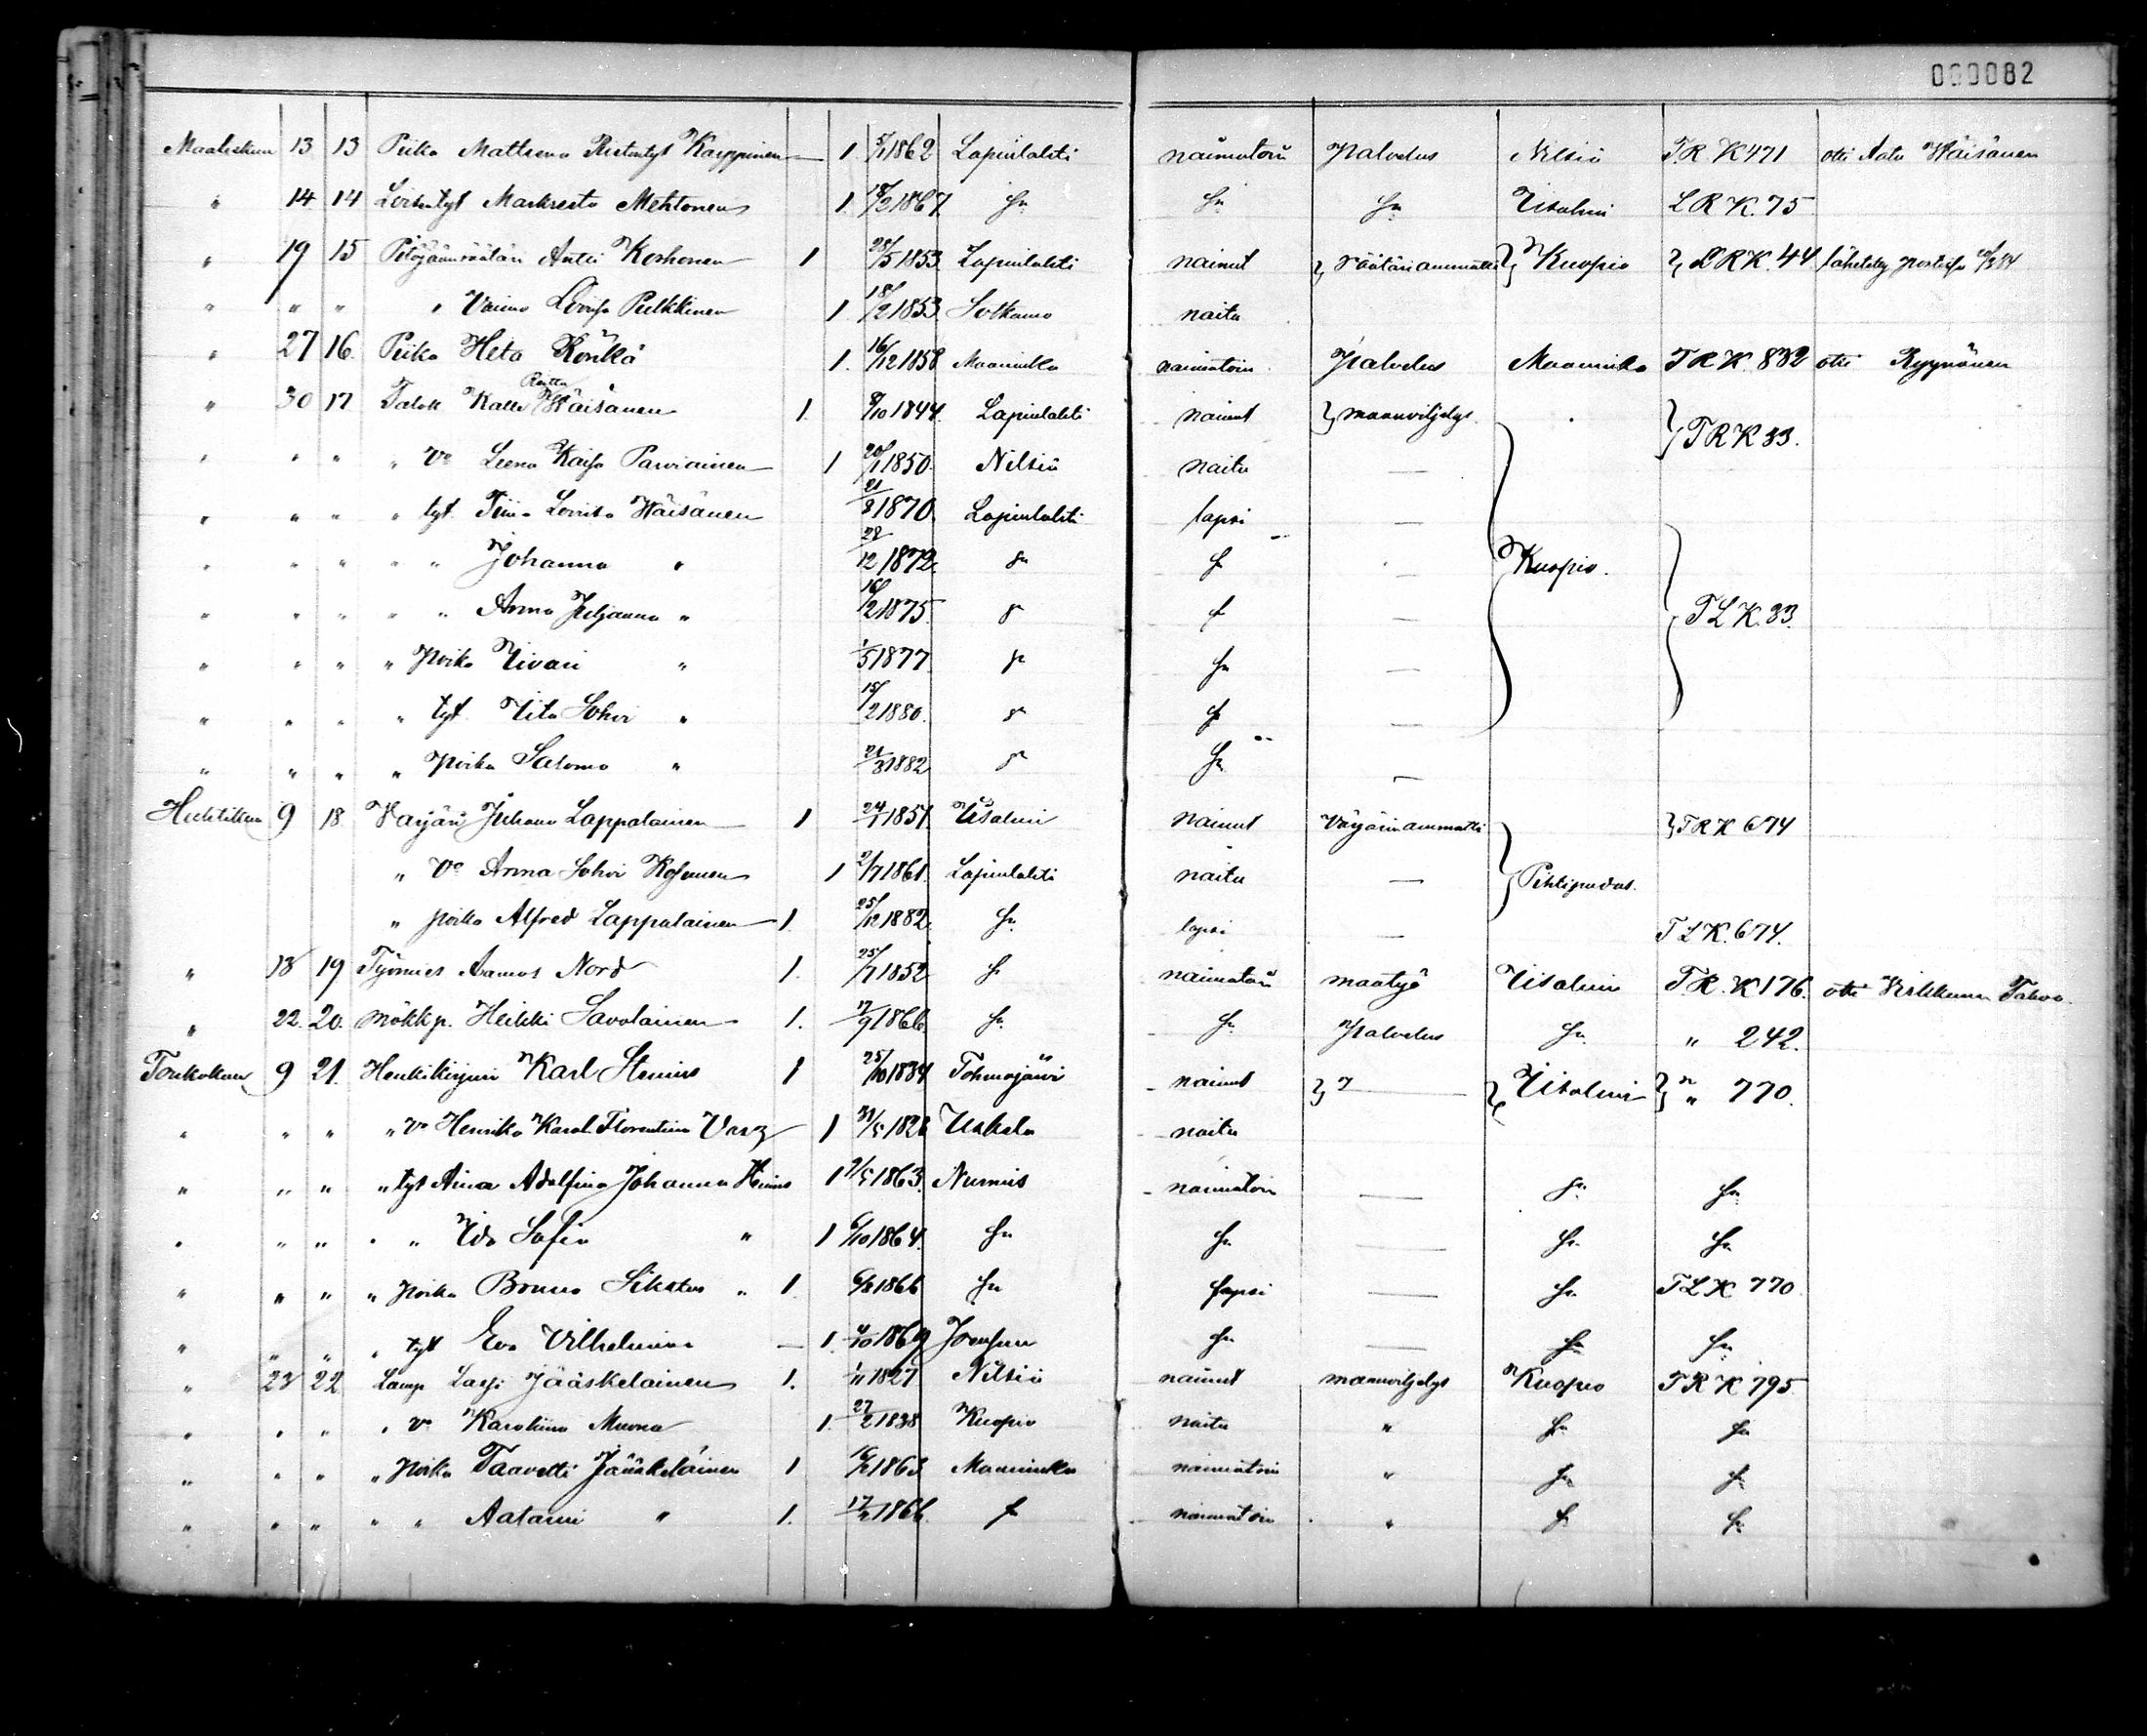 000082
Maaliskun 13 13 Piika Mattrena Ristintyt Karppinen 1. 5/1 1862 Lapinlahti naimatoin palvelus Nilsiä T.R.K 471 otti Aatu Wäisänen
" 14 14 Loistyt Markreeta Mehtonen 1. 18/2 1867 Sn. Sn. Sn. Iisalmi L R K. 75
" 19 15 Pitäjäänräätäri Antti Korhonen 1 25/5 1853 Lapinlahti nainut räätäriammatti Kuopio L R K. 44 lähetetty postissa
" " " " Vaimo Loviisa Pulkkinen 1. 18/2 1853 Sotkamo naitu
" 27 16. Piika Heta Könkä 1. 16/12 1858 Maaninka naimatoin Palvelus Maaninka T R K. 832 otti Ryynänen
" 30 17 Talok Kalle Reitta Wäisänen 1. 8/10 1844. Lapinlahti nainut maanviljelys. T R K 33.
" " " " Vo Leena Kaisa Parviainen 1 20/1 1850. Nilsiä naitu —
" " " " tyt. Tiina Lovisa Wäisänen 21/8 1870. Lapinlahti lapsi —
" " " " " Johanna " 28/12 1872. Sn S — Kuopio.
" " " " " Anna Juljanna " 16/2 1875. S S — T L K. 33.
" " " " poika Iivari " 1/5 1877. S Sn —
" " " " tyt. Iita Sohvi " 15/2 1880. S S —
" " " " poika Salomo " 21/3 1882 S Sn —
Huhtikun 9 18 Värjäri Juhana Lappalainen 1 24/1 1851. Iisalmi nainut Värjärinammatti T R K 674
" Vo Anna Sohvi Kosunen 1 2/7 1861. Lapinlahti naitu — Pihtipudas.
" poika Alfred Lappalainen 1. 25/12 1882. Sn. lapsi — T L K. 674.
" 18 19 Työmies Aamos Nord 1. 25/7 1852 S naimatoin maatyö Iisalmi T.R.K 176. otti Takoo.
" 22. 20. mökkp. Heikki Savolainen 1. 17/9 1866 Sn. Sn. Palvelus Sn. " 242.
Toukokun 9 21. Henkikirjuri Karl Stenius 1 25/10 1834 Tohmajärvi nainut — Iisalmi " 770.
" " " " Vo Henrika Karol. Florentina 1 1826 Uskela naitu
" " " " tyt Aina Adolfina Johanna 1 2/5 1863. Nurmis naimatoin — Sn. Sn.
" " " " " Ida Sofia " 1 6/10 1864. Sn Sn. — Sn. Sn.
" " " " poika Bruno Sikstus " 1. 6/8 1866 Sn lapsi — Sn. T L K 770.
" " " " tyt Eva Vilhelmina — 1. 4/10 1869 Joensuu Sn — Sn Sn.
" 23 22 Lamp Lassi Jääskeläinen 1. 1/11 1827 Nilsiä nainut maanviljelys Kuopio T R K 795
" " " " Vo Karoliina Muona 1. 27/2 1838 Kuopio naitu " Sn Sn
" " " " poika Taavetti Jääskeläinen 1 1863 Maaninka naimatoin " Sn S.
" " " " " Aatami " 1. 1866. S naimatoin " S Sn.